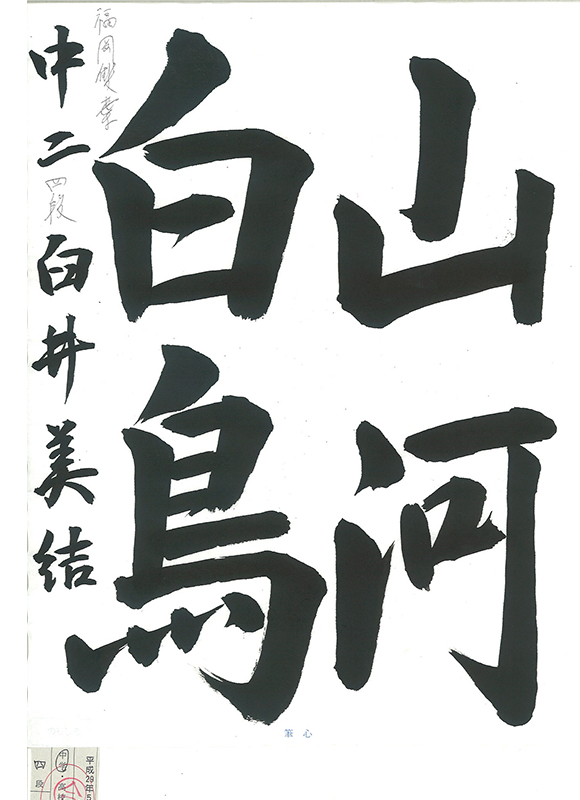 山河
白鳥
福岡雙葉
中二 四段 白井美結
筆心
平成29年5
中学・高校
四段